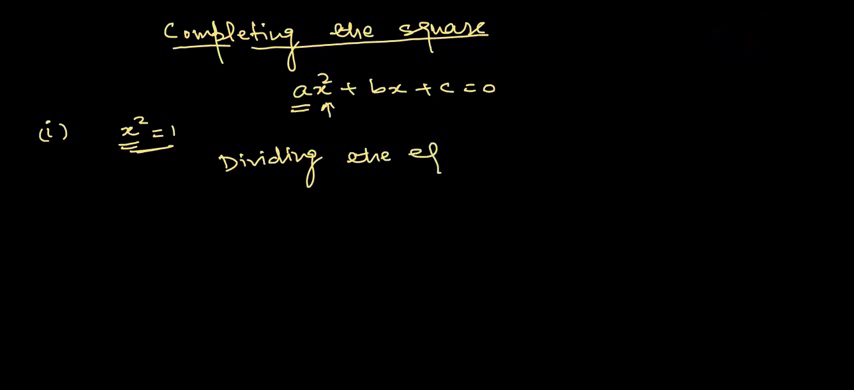 Completing the square
ax² + bx + c = 0
(i) x² = 1
Dividing the eq